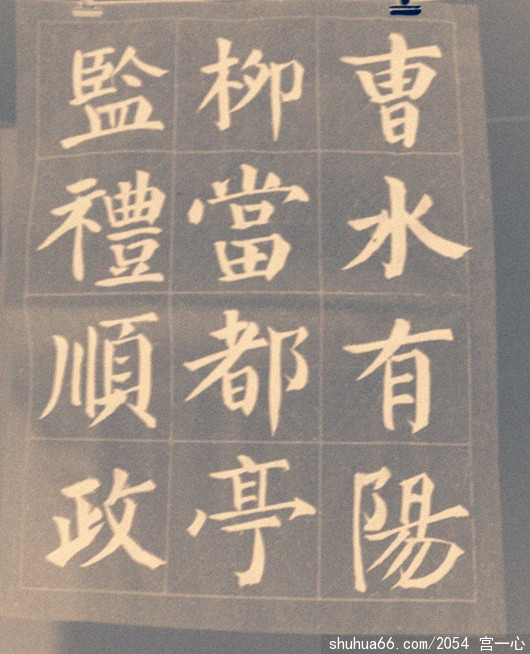 曺水有陽
柳當都亭
監禮順政
shuhua66.com/2054 宫一心